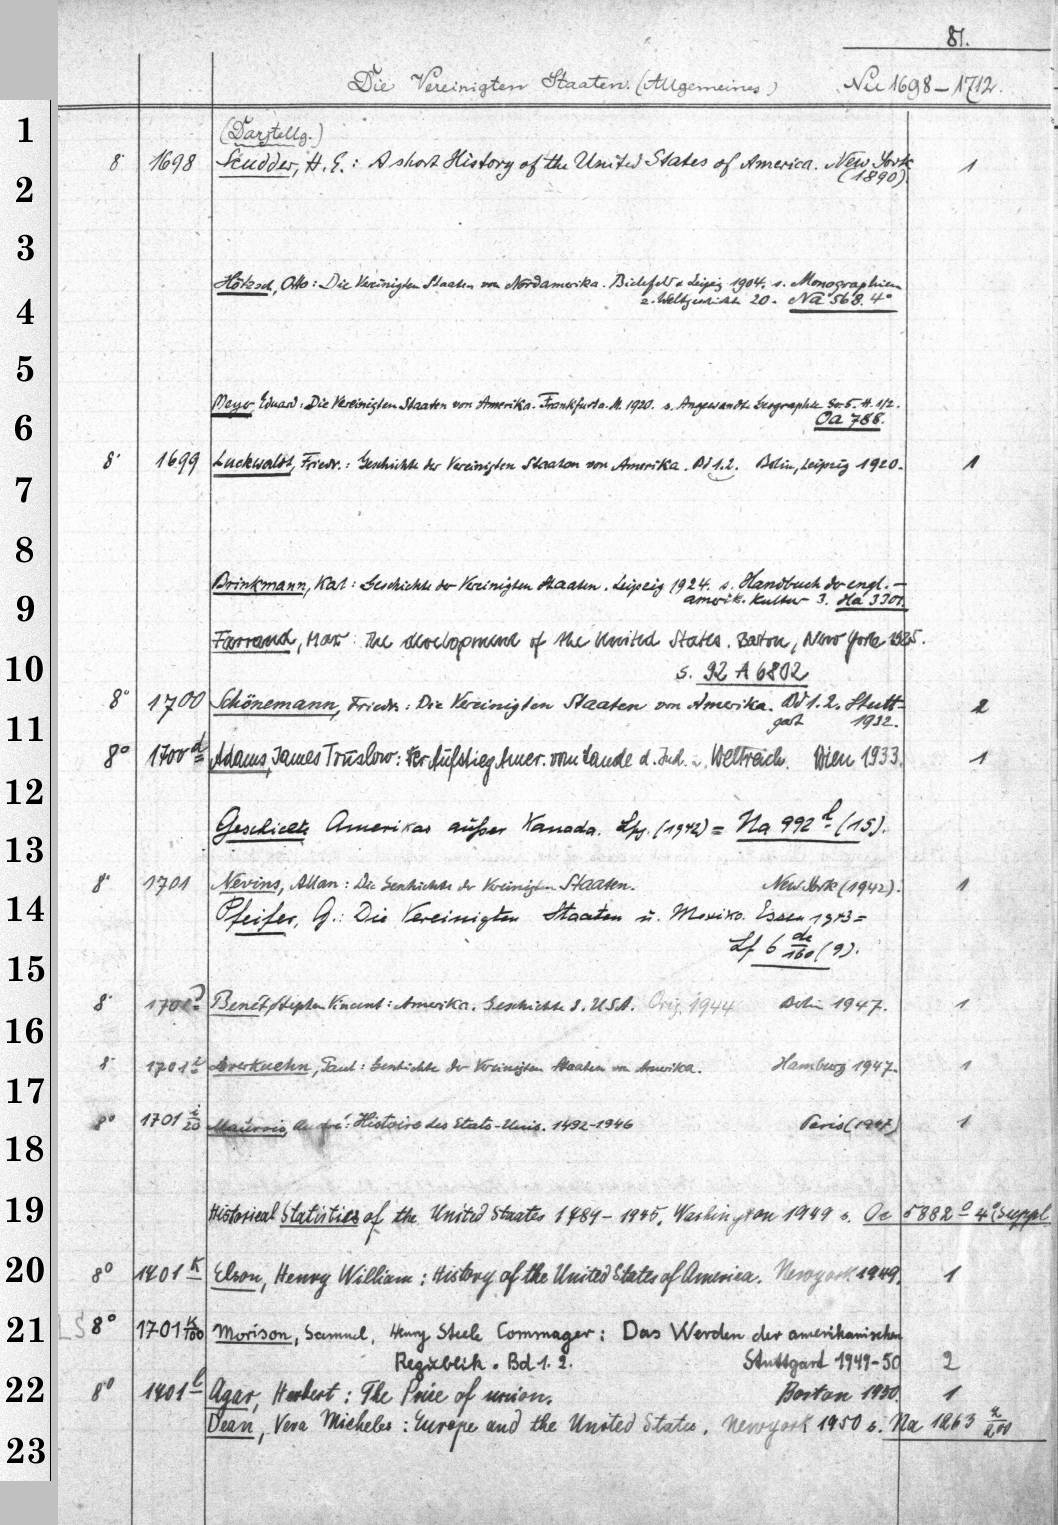 81.
Die Vereinigten Staaten. (Allgemeines) Nu 1698-1712.
1
(Darstellg.)
8° 1698 Scudder, H. E.: A short History of the United States of America. New York 1
(1890).
2
3
Hötzsch, Otto: Die Vereinigten Staaten von Nordamerika. Bielefeld u. Leipzig 1904. s. Monographien
z. Weltgeschichte 20. Na 568. 4°
4
5
Meyer, Eduard: Die Vereinigten Staaten von Amerika. Frankfurt a. M. 1920. s. Angewandte Geographie Ser. 5. H. 1/2.
Oa 788.
6
8° 1699 Luckwaldt, Friedr.: Geschichte der Vereinigten Staaten von Amerika. Bd 1.2. Berlin, Leipzig 1920. 1
7
8
Brinkmann, Karl: Geschichte der Vereinigten Staaten. Leipzig 1924. s. Handbuch der engl.-
amerik. Kultur 3. Ha 3301.
9
Farrand, Max: The development of the United States. Boston, New York 1925.
s. 92 A 6802
10
8° 1700 Schönemann, Friedr.: Die Vereinigten Staaten von Amerika. Bd 1.2. Stutt- 2
gart 1932.
11
8° 1700 d Adams, James Truslow: Der Aufstieg Amer. vom Lande d. Ind. z. Weltreich. Wien 1933. 1
12
Geschichte Amerikas außer Kanada. Lpz. (1942) = Na 992 l (15).
13
8° 1701 Nevins, Allan: Die Geschichte der Vereinigten Staaten. New York (1942). 1
14
Pfeifer, G.: Die Vereinigten Staaten u. Mexiko. Essen 1943 =
Lf 6 de/160 (9).
15
8° 1701 Benét, Stephen Vincent: Amerika. Geschichte d. USA. Orig. 1944 Berlin 1947. 1
16
8° 1701 Leverkuehn, Paul: Geschichte der Vereinigten Staaten von Amerika. Hamburg 1947. 1
17
8° 1701 i/20 Maurois, André: Histoire des Etats-Unis. 1492-1946 Paris (1947) 1
18
19 Historical Statistics of the United States 1789-1945. Washington 1949 s. Oe 5882 4° Suppl.
20 8° 1701 k Elson, Henry William: History of the United States of America. Newyork 1949. 1
21 LS 8° 1701 k/100 Morison, Samuel, Henry Steele Commager: Das Werden der amerikanischen
Republik. Bd 1. 2. Stuttgart 1949-50 2
22 8° 1701 l Agar, Herbert: The Price of union. Boston 1950. 1
Dean, Vera Micheles: Europe and the United States. Newyork 1950 s. Na 1263 /200
23